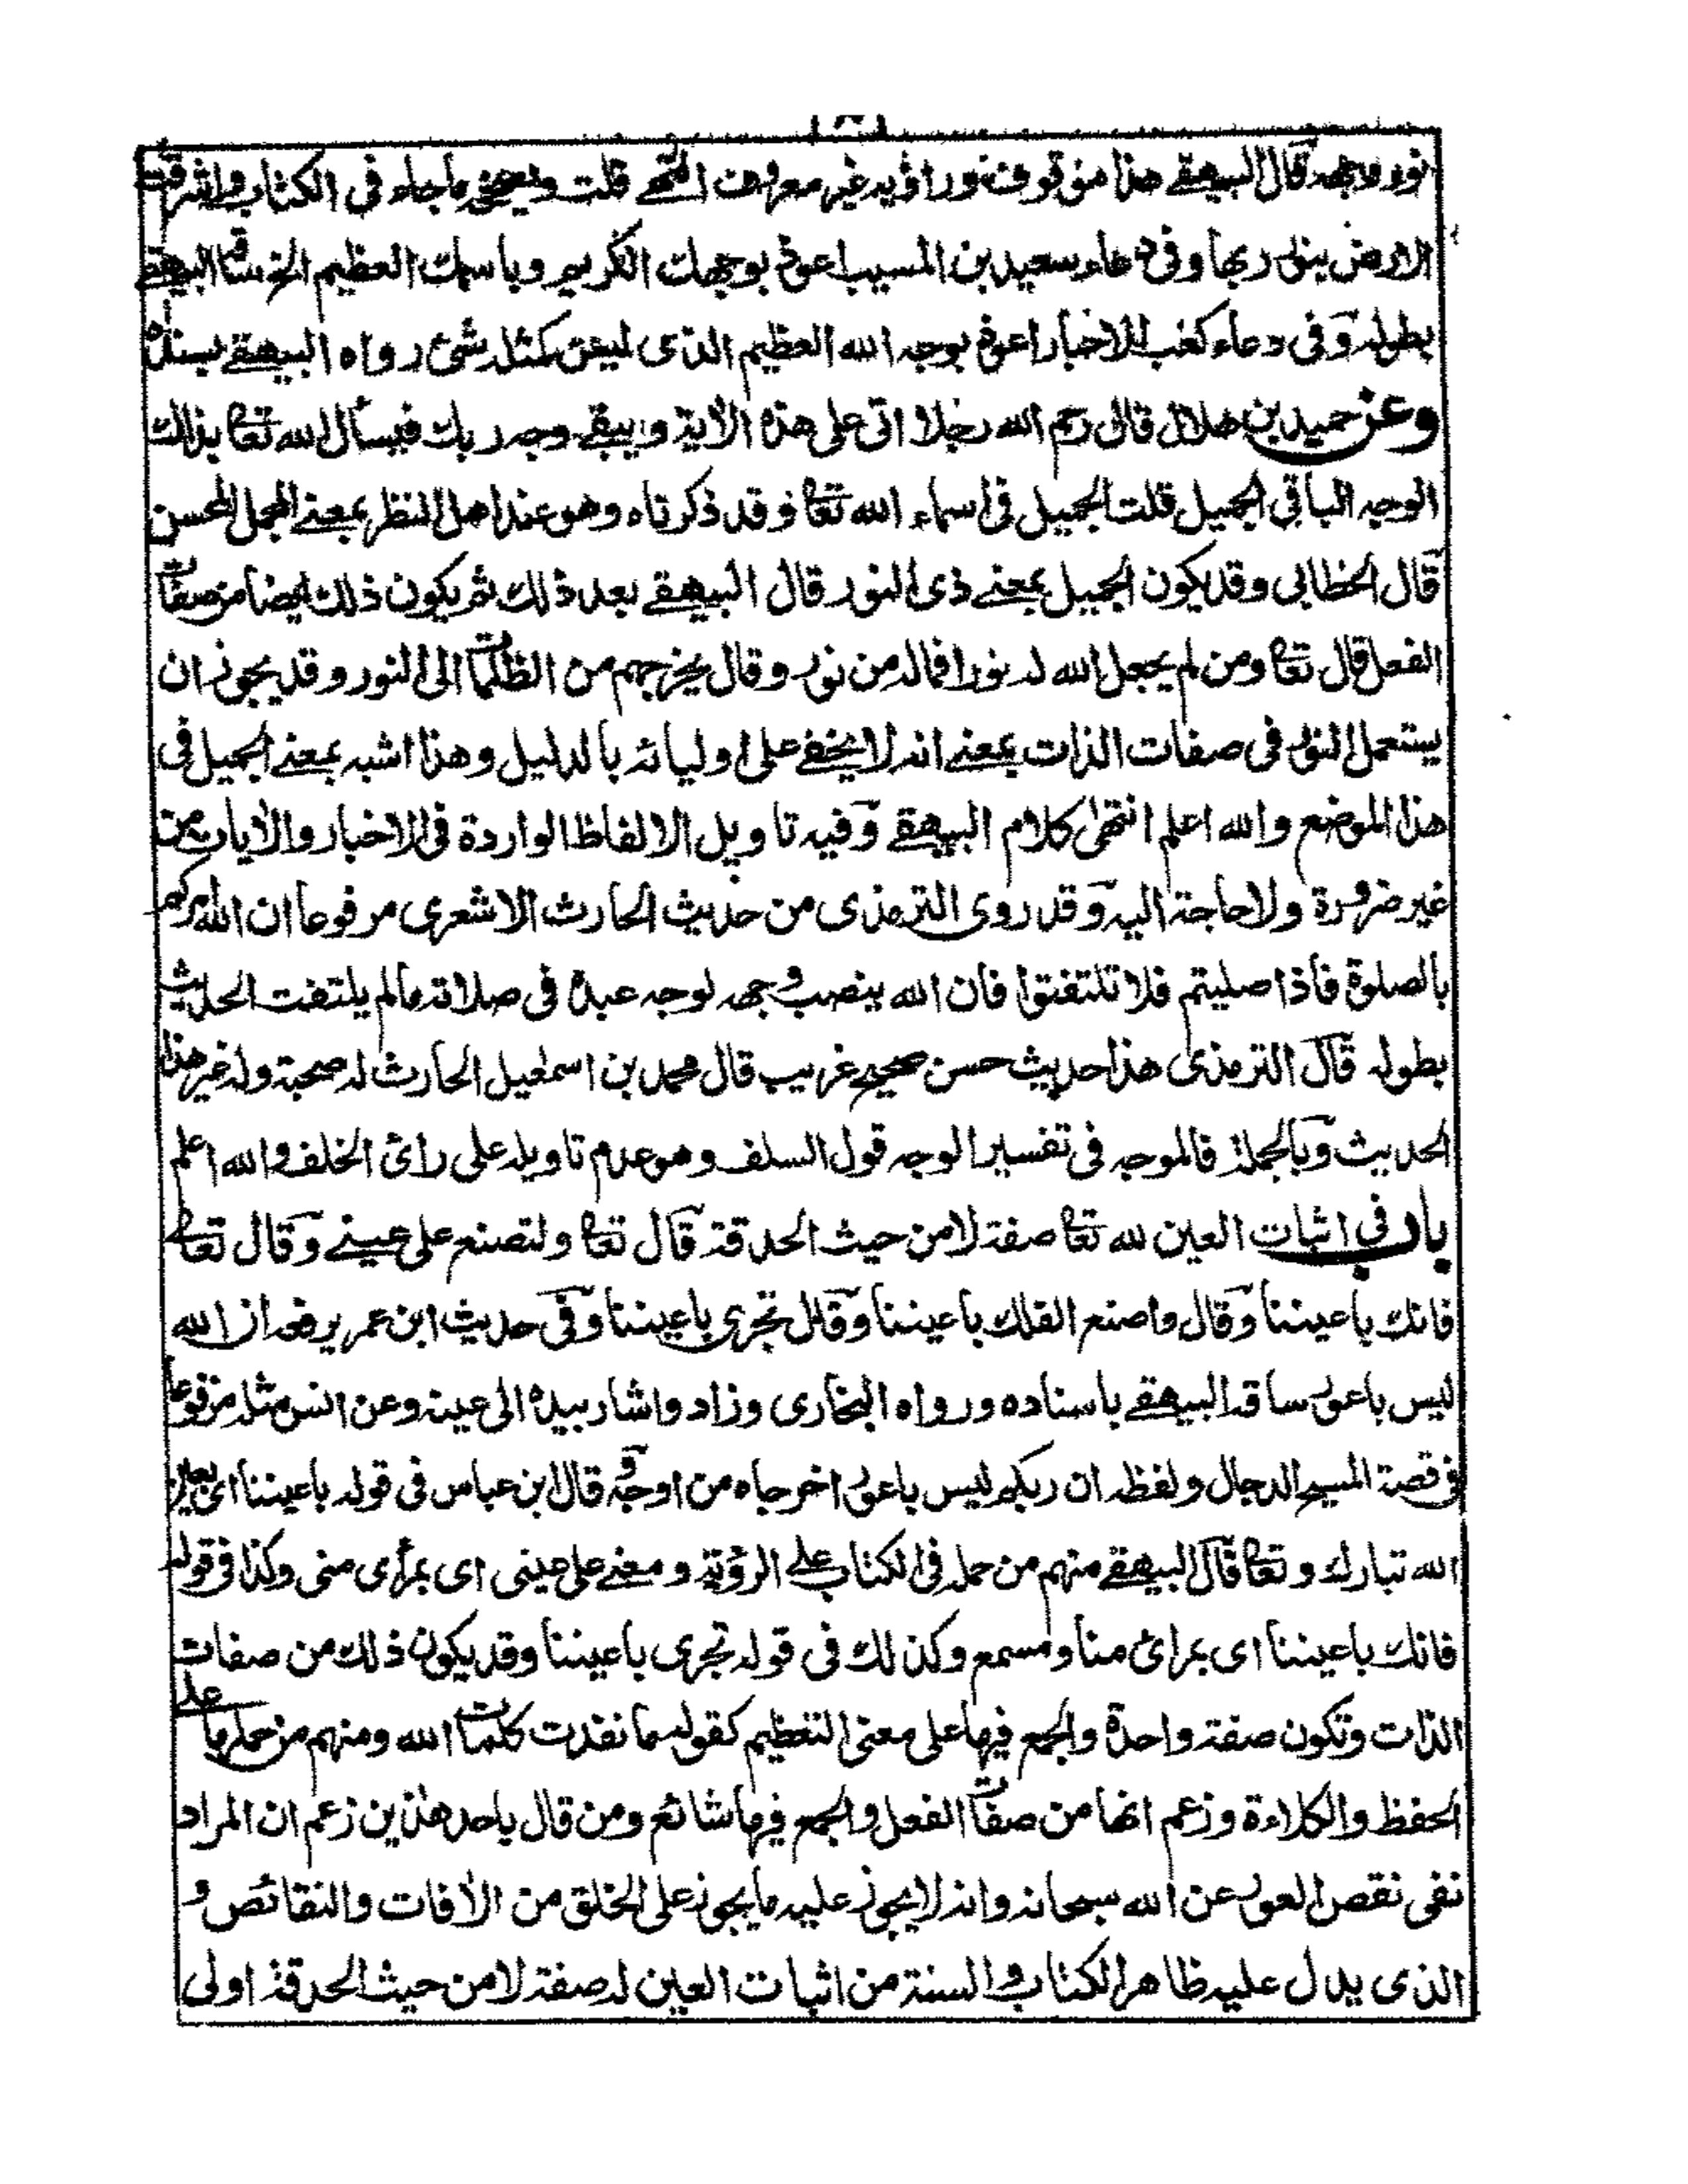 نور وجهه قال البيهقے هذا موقوف وراويه غير معروف انتهے قلت ويعضده ماجاء فى الكتاب واشرقت
الارض بنور ربها وفى دعاء سعيد بن المسيب اعوذ بوجهك الكريم وباسمك العظيم الخ ساقه البيهقے
بطوله وفى دعاء كعب الاحبار اعوذ بوجه الله العظيم الذى ليس كمثله شئ رواه البيهقے بسنده
وعن حميد بن هلال قال رحم الله رجلا اتى على هذه الآية ويبقے وجه ربك فيسأل الله تعا بذلك
الوجه الباقى الجميل قلت الجميل فى اسماء الله تعا وقد ذكرناه وهو عند اهل النظر بمعنے المجمل المحسن
قال الخطابى وقد يكون الجميل بمعنے ذى النور قال البيهقے بعد ذلك ثم يكون ذلك ايضا من صفات
الفعل قال تعا ومن لم يجعل الله له نورا فماله من نور وقال يخرجهم من الظلمات الى النور وقد يجوز ان
يستعمل النور فى صفات الذات بمعنے انه لا يخفے على اوليائه بالدليل وهذا اشبه بمعنے الجميل فى
هذا الموضع والله اعلم انتهى كلام البيهقے وفيه تاويل الالفاظ الواردة فى الاخبار والآيات من
غير ضرورة ولا حاجة اليه وقد روى الترمذى من حديث الحارث الاشعرى مرفوعا ان الله امركم
بالصلوة فاذا صليتم فلا تلتفتوا فان الله ينصب وجهه لوجه عبده فى صلاته مالم يلتفت الحديث
بطوله قال الترمذى هذا حديث حسن صحيح غريب قال محمد بن اسمعيل الحارث له صحبة وله غير هذا
الحديث وبالجملة فالموجه فى تفسير الوجه قول السلف وهو عدم تاويله على رائ الخلف والله اعلم
باب فى اثبات العين لله تعا صفة لا من حيث الحدقة قال تعا ولتصنع على عينے وقال تعا
فانك باعيننا وقال واصنع الفلك باعيننا وقال تجرى باعيننا وفى حديث ابن عمر يرفعه ان الله
ليس باعور ساقه البيهقے باسناده ورواه البخارى وزاد واشار بيده الى عينه وعن انس مثله مرفوعا
فى قصة المسيح الدجال ولفظه ان ربكم ليس باعور اخرجاه من اوجه وقال ابن عباس فى قوله باعيننا اى بعين
الله تبارك وتعا قال البيهقے منهم من حمله فى الكتاب علے الرؤية ومعنے على عينى اى بمرأى منى وكذا فى قوله
فانك باعيننا اى بمرائ منا ومسمع وكذلك فى قوله تجرى باعيننا وقد يكون ذلك من صفات
الذات وتكون صفة واحدة والجمع فيها على معنى التعظيم كقوله ما نفدت كلمات الله ومنهم من حملها علے
الحفظ والكلاءة وزعم انها من صفات الفعل والجمع فيها شائع ومن قال باحد هذين زعم ان المراد
نفى نقص العور عن الله سبحانه وانه لا يجوز عليه ما يجوز على الخلق من الآفات والنقائص و
الذى يدل عليه ظاهر الكتاب والسنة من اثبات العين له صفة لا من حيث الحدقة اولى